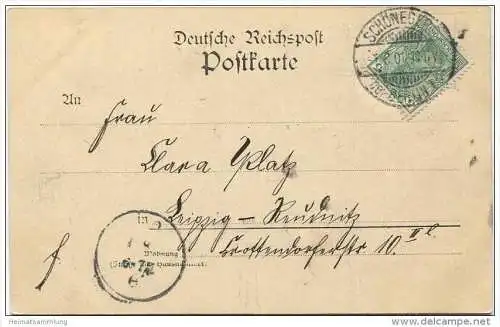 Deutsche Reichspost
Postkarte
SCHÖNEG
An
Frau
Clara Platz
in
Leipzig - Reudnitz
Wohnung
Crottendorferstr 10 II l.
Heimatsammlung